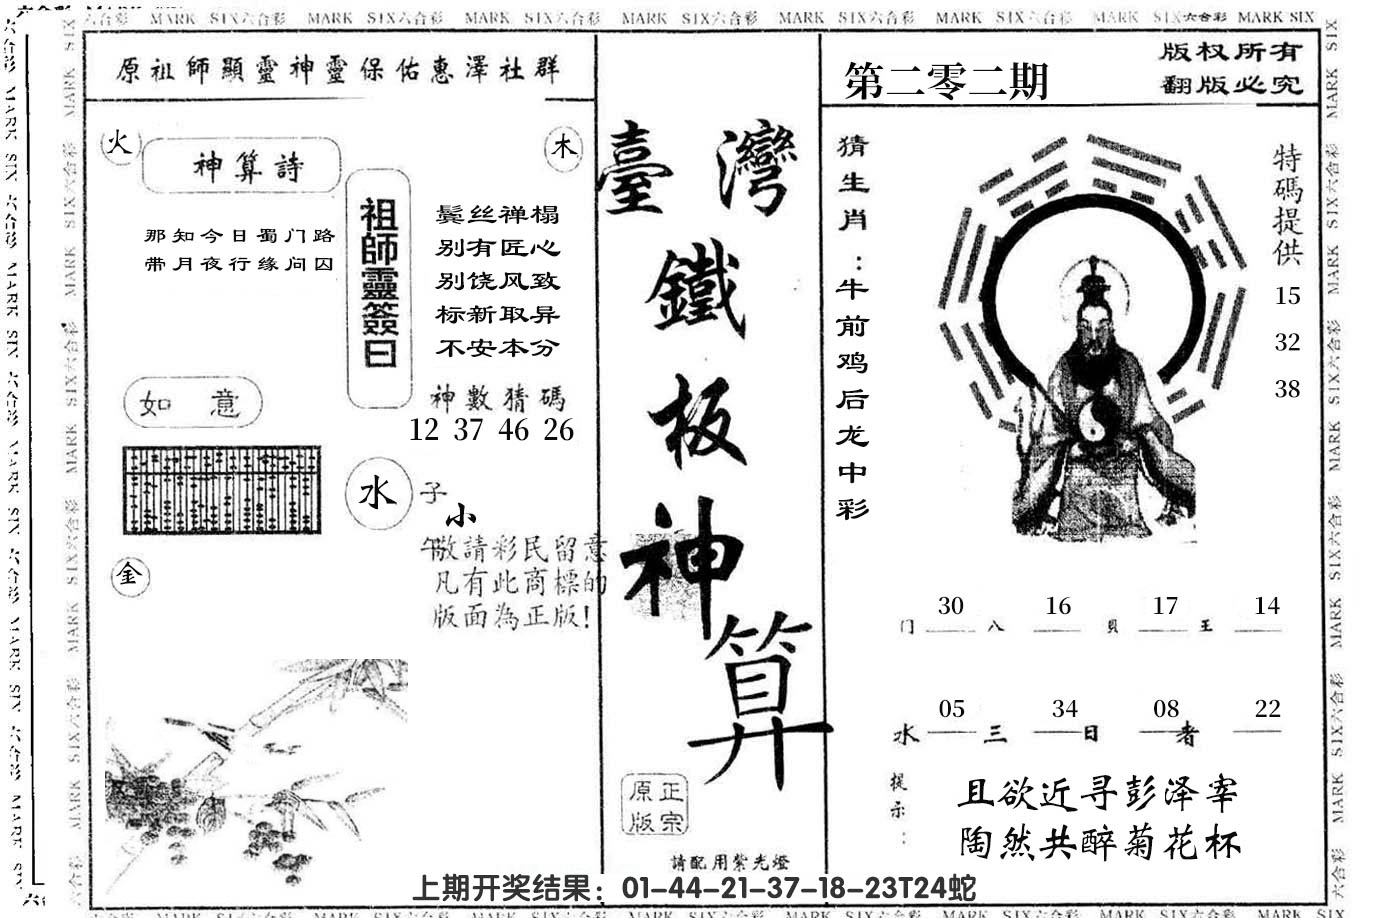 MARK SIX六合彩 MARK SIX六合彩 MARK SIX六合彩 MARK SIX六合彩 MARK SIX六合彩 MARK SIX六合彩 MARK SIX六合彩 MARK SIX
原祖師顯靈神靈保佑惠澤社群
火
神算詩
木
那知今日蜀门路
带月夜行缘问囚
祖師靈簽曰
鬓丝禅榻
别有匠心
别饶风致
标新取异
不安本分
神數猜碼
12 37 46 26
如 意
水
子
小
午
敬請彩民留意
凡有此商標的
版面為正版!
金
臺灣
鐵
板
神
算
正宗
原版
請配用紫光燈
第二零二期
版权所有
翻版必究
猜生肖:牛前鸡后龙中彩
特碼提供
15
32
38
30 16 17 14
门 八 貝 王
05 34 08 22
水 三 日 者
提示:
且欲近寻彭泽宰
陶然共醉菊花杯
上期开奖结果：01-44-21-37-18-23T24蛇